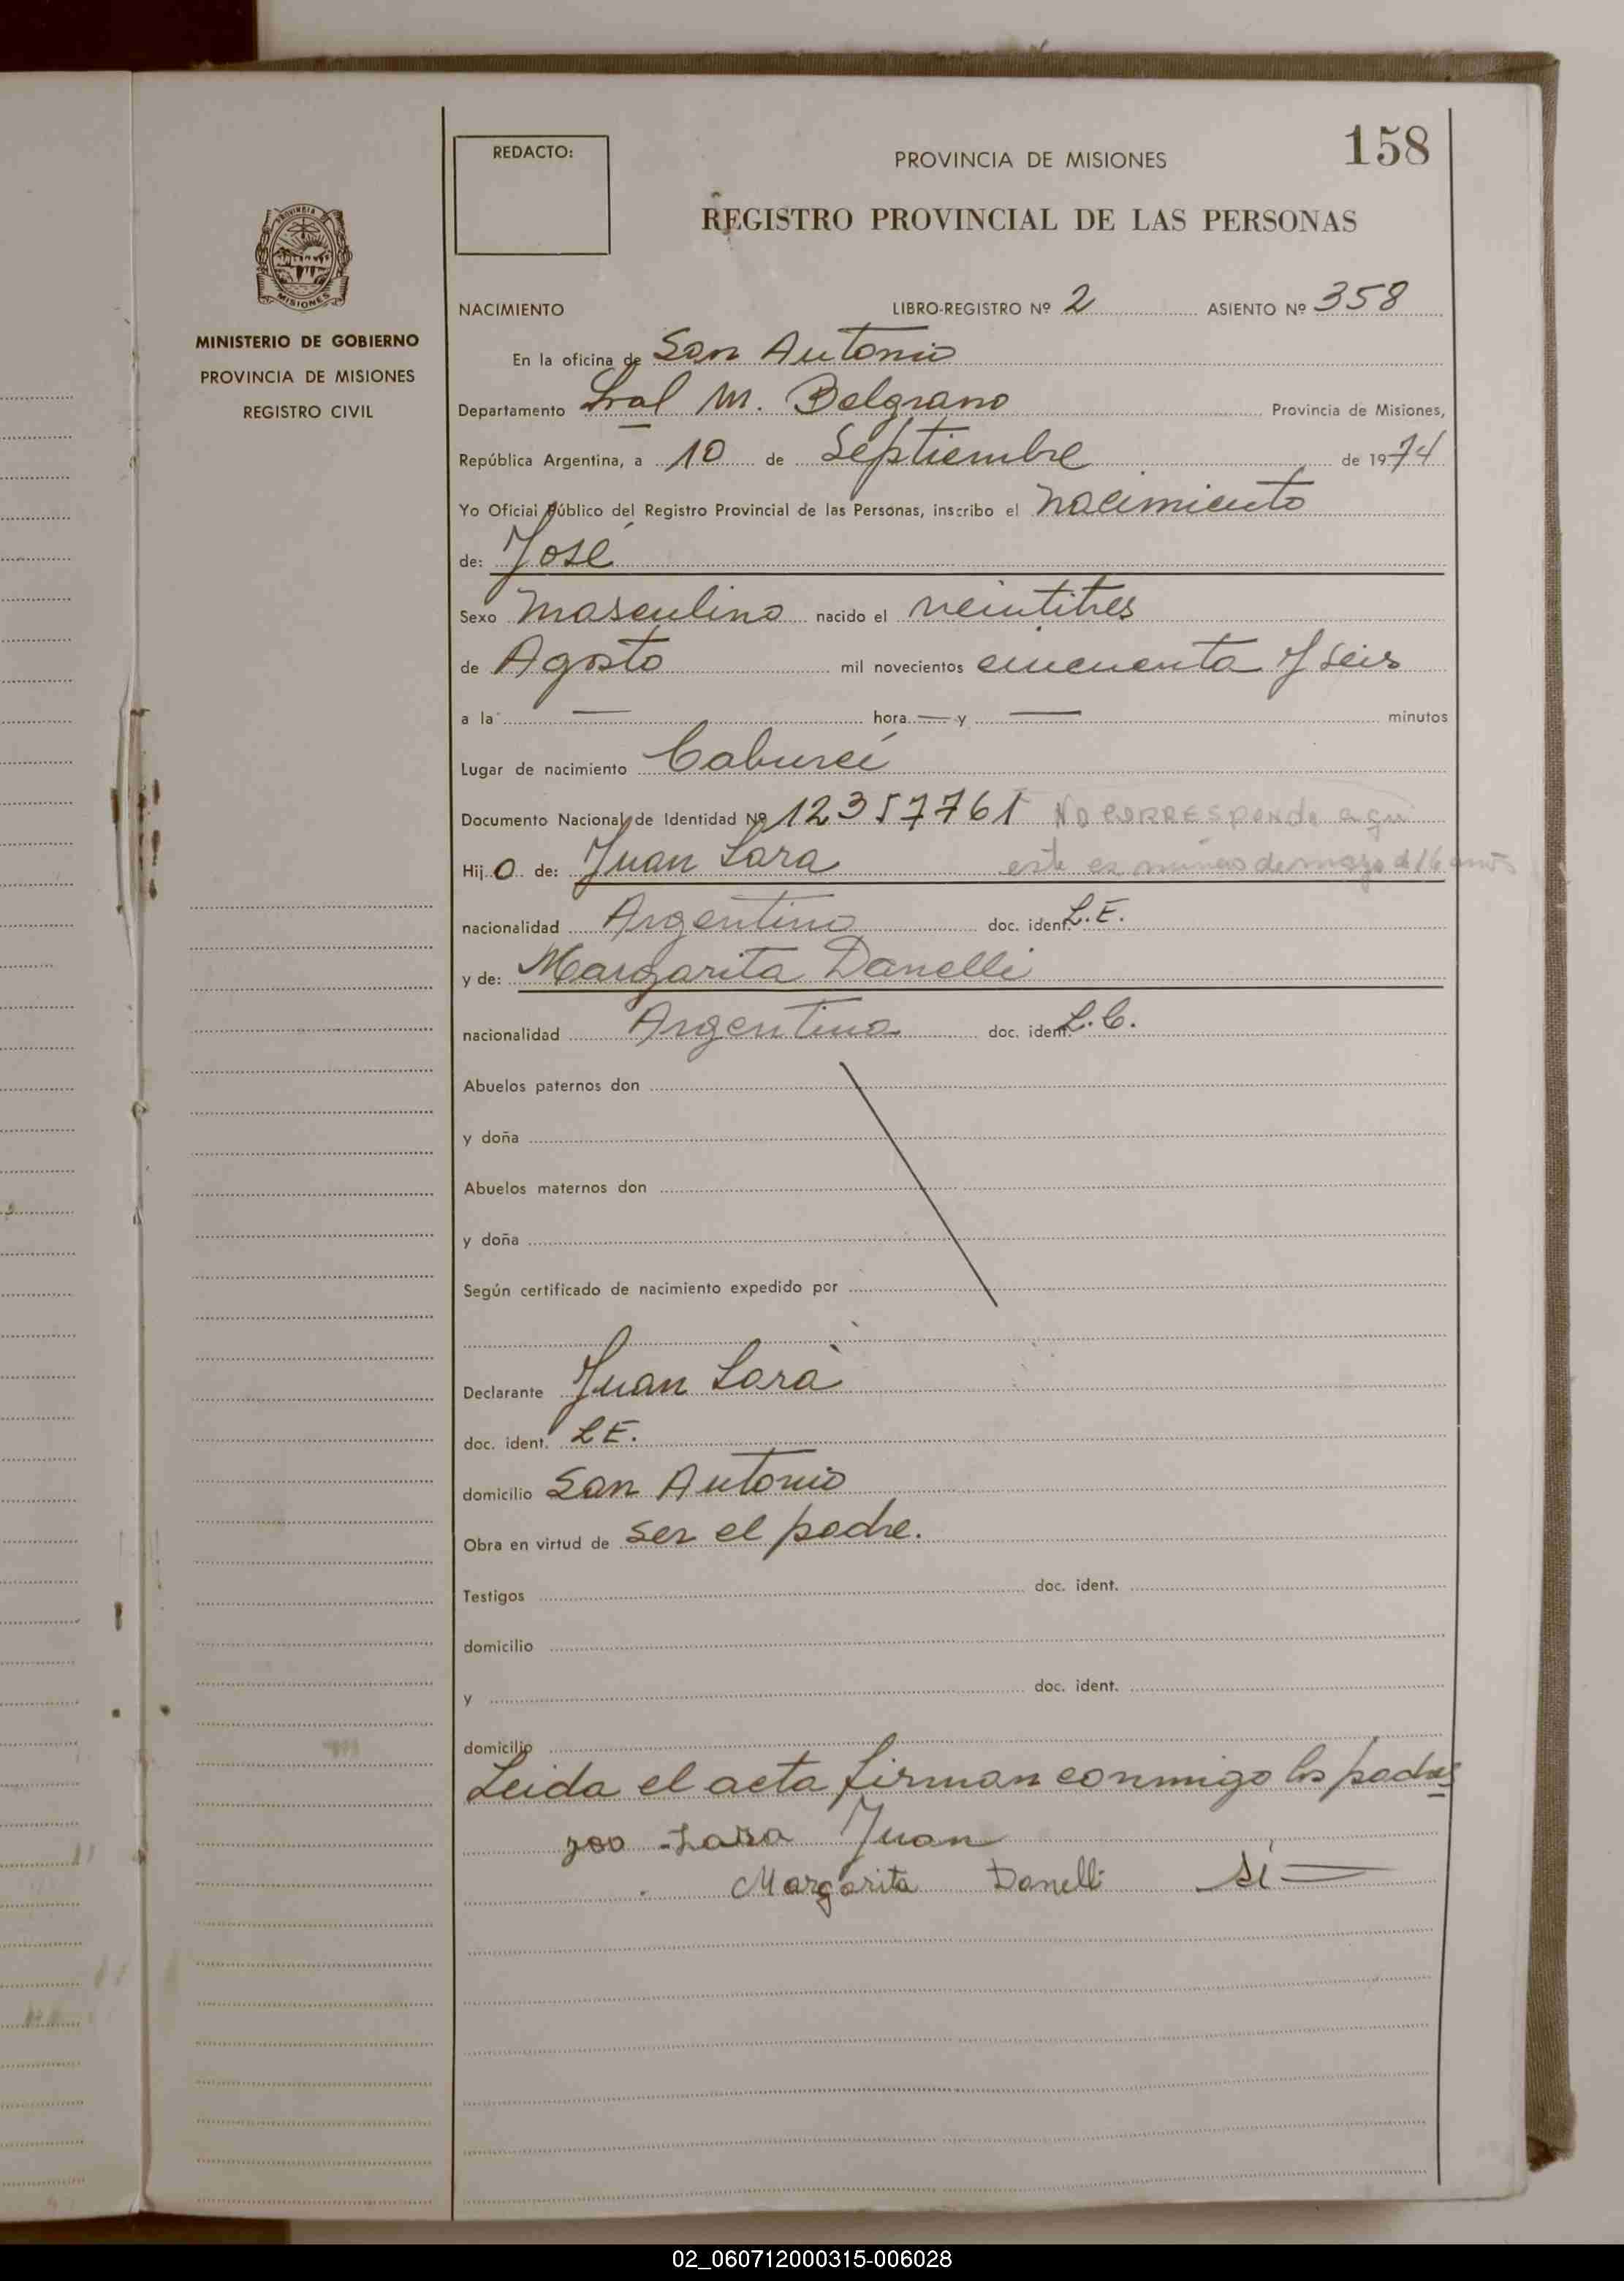 158
REDACTO:
PROVINCIA DE MISIONES
REGISTRO PROVINCIAL DE LAS PERSONAS
MISIONES
MINISTERIO DE GOBIERNO
PROVINCIA DE MISIONES
REGISTRO CIVIL
NACIMIENTO LIBRO-REGISTRO Nº 2 ASIENTO Nº 358
En la oficina de San Antonio
Departamento Gral M. Belgrano Provincia de Misiones,
República Argentina, a 10 de Septiembre de 1974
Yo Oficial Público del Registro Provincial de las Personas, inscribo el nacimiento
de: José
Sexo masculino nacido el veintitres
de Agosto mil novecientos cincuenta y seis
a la — hora — y — minutos
Lugar de nacimiento Caburei
Documento Nacional de Identidad Nº 12357761 No CORRESponde aqui
Hijo de: Juan Lara este es número de de 16 años
nacionalidad Argentino doc. ident. L.E.
y de: Margarita Danelli
nacionalidad Argentina doc. ident. L.C.
Abuelos paternos don
y doña
Abuelos maternos don
y doña
Según certificado de nacimiento expedido por
Declarante Juan Lara
doc. ident. L E.
domicilio San Antonio
Obra en virtud de ser el padre.
Testigos doc. ident.
domicilio
y doc. ident.
domicilio
Leida el acta firman conmigo los padres
Lara Juan
Margarita Danelli si
02_060712000315-006028